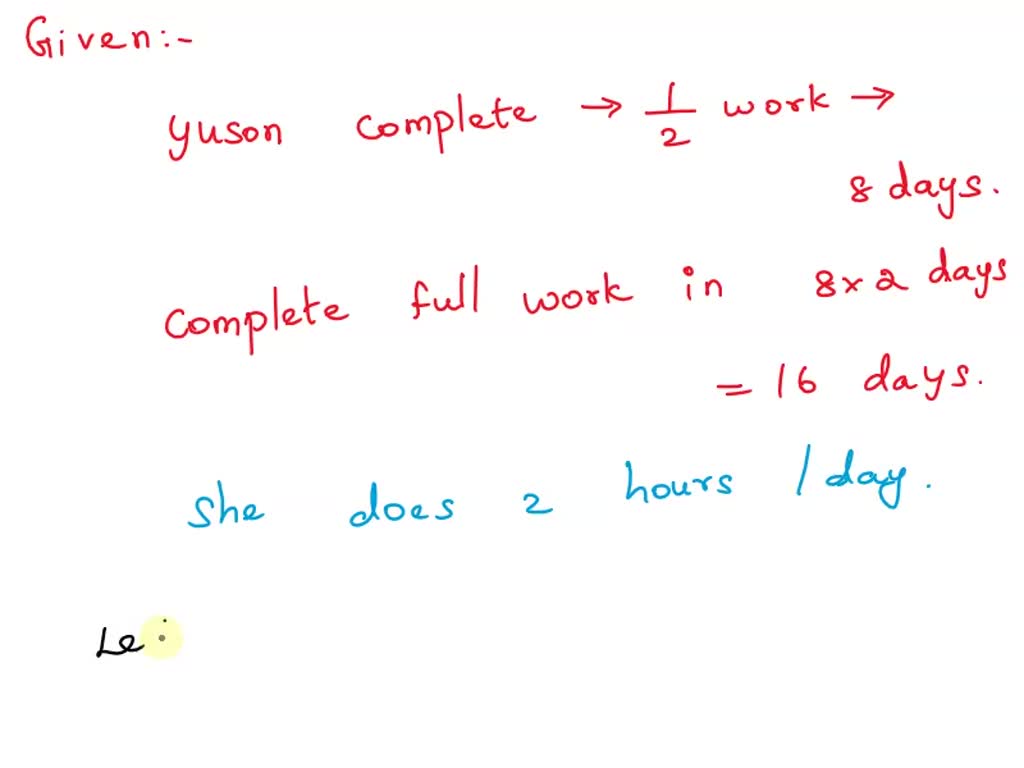 Given:-
yuson complete → 1/2 work →
8 days.
complete full work in 8×2 days
= 16 days.
she does 2 hours /day.
Le